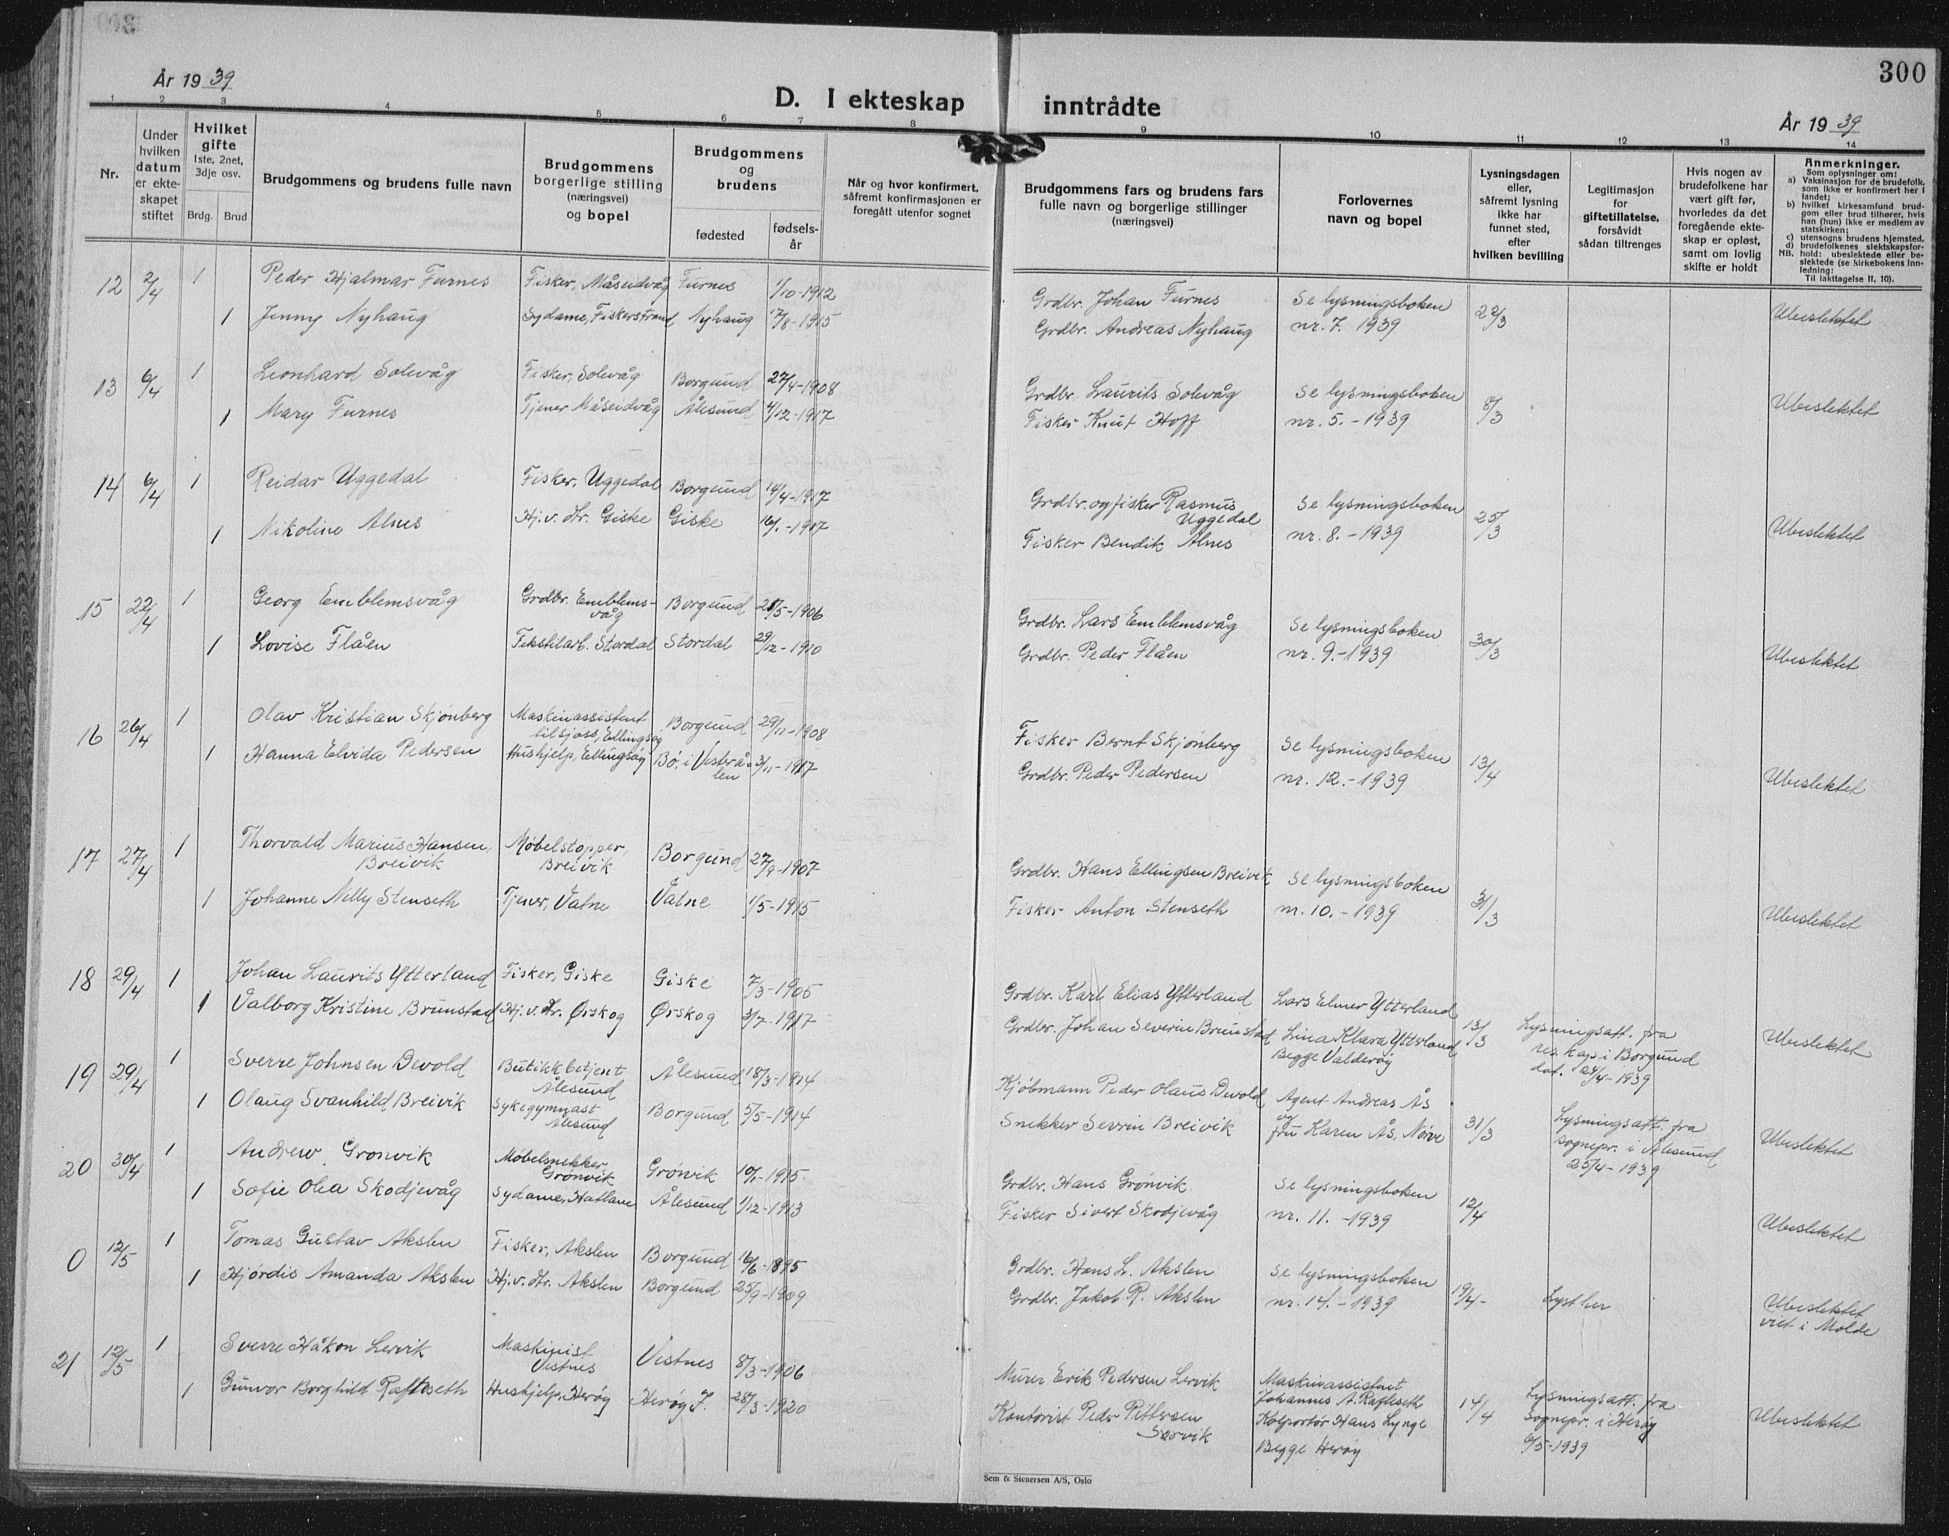 300
År 1939
D. I ekteskap inntrådte
År 1939
1 2 3 4 5 6 7 8 9 10 11 12 13 14
Nr.
Under hvilken datum er ekteskapet stiftet
Hvilket gifte
1ste, 2net, 3dje osv.
Brdg. Brud
Brudgommens og brudens fulle navn
Brudgommens borgerlige stilling (næringsvei) og bopel
Brudgommens og brudens
fødested
fødselsår
Når og hvor konfirmert, såfremt konfirmasjonen er foregått utenfor sognet
Brudgommens fars og brudens fars fulle navn og borgerlige stillinger (næringsvei)
Forlovernes navn og bopel
Lysningsdagen eller, såfremt lysning ikke har funnet sted, efter hvilken bevilling
Legitimasjon for giftetillatelse, forsåvidt sådan tiltrenges
Hvis nogen av brudefolkene har vært gift før, hvorledes da det foregående ekteskap er opløst, samt om lovlig skifte er holdt
Anmerkninger.
Som oplysninger om:
a) Vaksinasjon for de brudefolk, som ikke er konfirmert her i landet;
b) hvilket kirkesamfund brudgom eller brud tilhører, hvis han (hun) ikke er medlem av statskirken;
c) utensogns brudens hjemsted.
d) brudefolkenes slektskapsforhold: ubeslektede eller beslektede (se kirkebokens Innledning:
NB.
Til Iakttagelse II. 10).
12 2/4 1 Peder Hjalmar Furnes Fisker, Måseidvåg Furnes 1/10-1912 Grdbr. Johan Furnes Se lysningsboken 22/3 Ubeslektet
1 Jenny Nyhaug Sydame, Fiskerstrand Nyhaug 17/8-1915 Grdbr. Andreas Nyhaug nr. 7. 1939
13 6/4 1 Leonhard Solevåg Fisker, Solevåg Borgund 27/4-1908 Grdbr. Laurits Solevåg Se lysningsboken 8/3 Ubeslektet
1 Mary Furnes Tjener Måseidvåg Ålesund 4/12-1917 Fisker Knut Hoff nr. 5. - 1939
14 6/4 1 Reidar Uggedal Fisker, Uggedal Borgund 14/4-1917 Grdbr. og fisker Rasmus Uggedal Se lysningsboken 25/3 Ubeslektet
1 Nikoline Alnes Hj.v. Hr. Giske Giske 1917 Fisker Bendik Alnes nr. 8. - 1939
15 22/4 1 Georg Emblemsvåg Grdbr. Emblemsvåg Borgund 1906 Grdbr. Lars Emblemsvåg Se lysningsboken 30/3 Ubeslektet
1 Lovise Flåen Tekstilarb. Stordal Stordal 29/12-1910 Grdbr. Peder Flåen nr. 9. - 1939
16 26/4 1 Olav Kristian Skjønberg Maskinassistent tilsjøss, Ellingsøy Borgund 29/11-1908 Fisker Bernt Skjønberg Se lysningsboken 13/4 Ubeslektet
1 Hanna Elvida Pedersen Hushjelp, Ellingsøy Bø, i Vesterålen 3/11-1917 Grdbr. Peder Pedersen nr. 12. - 1939
17 27/4 1 Thorvald Marius Hansen Breivik Møbelstopper, Breivik Borgund 27/9-1907 Grdbr. Hans Ellingsen Breivik Se lysningsboken 31/3 Ubeslektet
1 Johanne Nelly Stenseth Tjener, Vatne Vatne 1/5-1915 Fisker Anton Stenseth nr. 10. - 1939
18 29/4 1 Johan Laurits Ytterland Fisker, Giske Giske 7/3-1905 Grdbr. Karl Elias Ytterland Lars Elmer Ytterland 13/3 Lysningsatt. fra res. kap i Borgund dat. 29/4-1939 Ubeslektet
1 Valborg Kristine Brunstad Hj.v. Hr. Ørskog Ørskog 3/7-1917 Grdbr. Johan Severin Brunstad Lina Klara Ytterland Begge Valderøy
19 29/4 1 Sverre Johnsen Devold Butikkbetjent Ålesund Ålesund 18/3-1914 Kjøbmann Peder Olaus Devold Agent Andreas Ås 31/3 Lysningsatt. fra sognepr. i Ålesund 25/4-1939 Ubeslektet
1 Olaug Svanhild Breivik Sykegymnast Ålesund Borgund 5/5-1914 Snekker Sevrin Breivik og fru Karen Ås, Nørve
20 30/4 1 Andrew Grønvik Møbelsnekker Grønvik Grønvik 1915 Grdbr. Hans Grønvik Se lysningsboken 12/4 Ubeslektet
1 Sofie Olea Skodjevåg Sydame, Hatland Ålesund 1/12-1913 Fisker Sivert Skodjevåg nr. 11. - 1939
0 12/5 1 Tomas Gustav Akslen Fisker, Akslen Borgund 16/6-1895 Grdbr. Hans L. Akslen Se lysningsboken 19/4- Lyst her Ubeslektet viet i Molde
1 Hjørdis Amanda Akslen Hj.v. Hr. Akslen Borgund 25/9-1909 Grdbr. Jakob R. Akslen nr. 14. - 1939
21 12/5 1 Sverre Håkon Lervik Maskinist Vestnes Vestnes 8/3-1906 Murer Erik Pedersen Lervik Maskinassistent Johannes A. Rafteseth 14/4 Lysningsatt. fra Sognepr. i Herøy 6/5-1939 Ubeslektet
1 Gunvor Borghild Rafteseth Hushjelp, Herøy Herøy 28/3-1920 Kontorist Peder Pettersen Kolportør Hans Lynge Begge Herøy
Sem & Stenersen A/S, Oslo